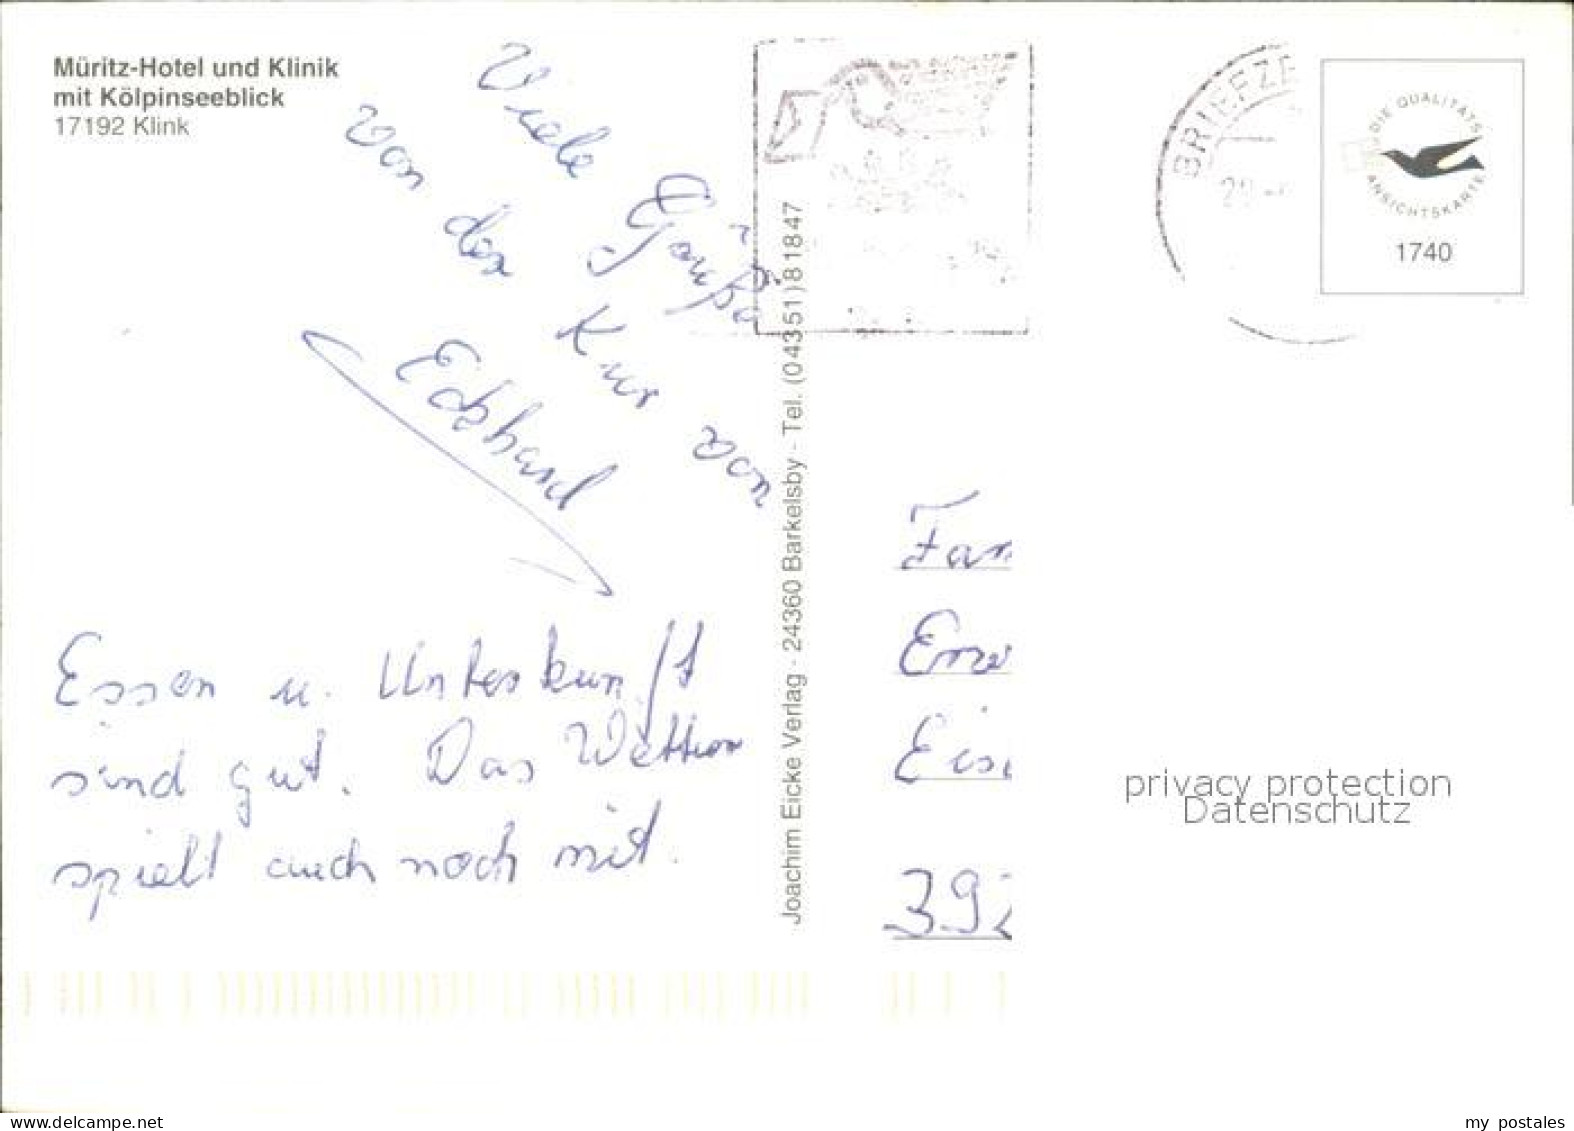 Müritz-Hotel und Klinik
mit Kölpinseeblick
17192 Klink
Viele Grüße
von der Kur von
Eckhard
Essen u. Unterkunft
sind gut. Das Wetter
spielt auch noch mit.
Joachim Eicke Verlag · 24360 Barkelsby - Tel. (04351) 81847
BRIEFZE
DIE QUALITÄTS
ANSICHTSKARTE
1740
Fam
Erw
Eis
392
privacy protection
Datenschutz
my postales